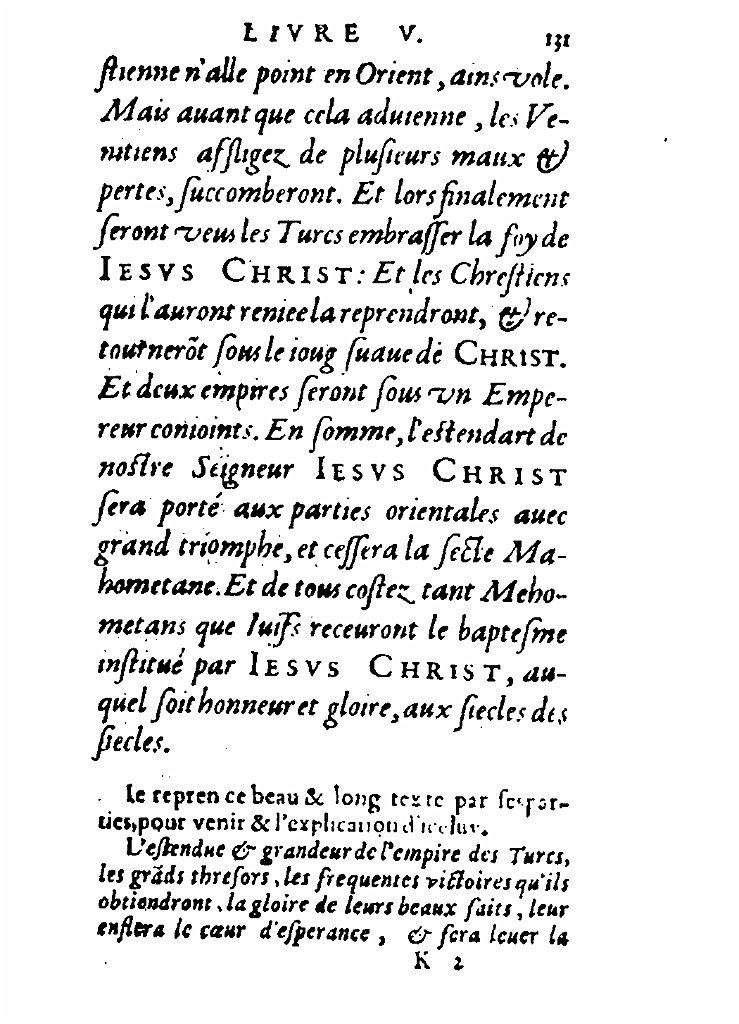 LIVRE V. 131
ſtienne n'alle point en Orient, ains vole.
Mais auant que cela aduienne, les Ve-
nitiens affligez de pluſieurs maux &
pertes, ſuccomberont. Et lors finalement
ſeront veus les Turcs embraſſer la foy de
IESVS CHRIST: Et les Chreſtiens
qui l'auront reniee la reprendront, & re-
tournerõt ſous le ioug ſuaue de CHRIST.
Et deux empires ſeront ſous vn Empe-
reur conioints. En ſomme, l'eſtendart de
noſtre Seigneur IESVS CHRIST
ſera porté aux parties orientales auec
grand triomphe, et ceſſera la ſecte Ma-
hometane. Et de tous coſtez tant Meho-
metans que Iuifs receuront le bapteſme
inſtitué par IESVS CHRIST, au-
quel ſoit honneur et gloire, aux ſiecles des
ſiecles.
Ie repren ce beau & long texte par ſes par-
ties, pour venir & l'explication d'iceluy.
L'eſtendue & grandeur de l'empire des Turcs,
les grãds threſors, les frequentes victoires qu'ils
obtiendront, la gloire de leurs beaux faits, leur
enflera le cœur d'eſperance, & fera leuer la
K 2